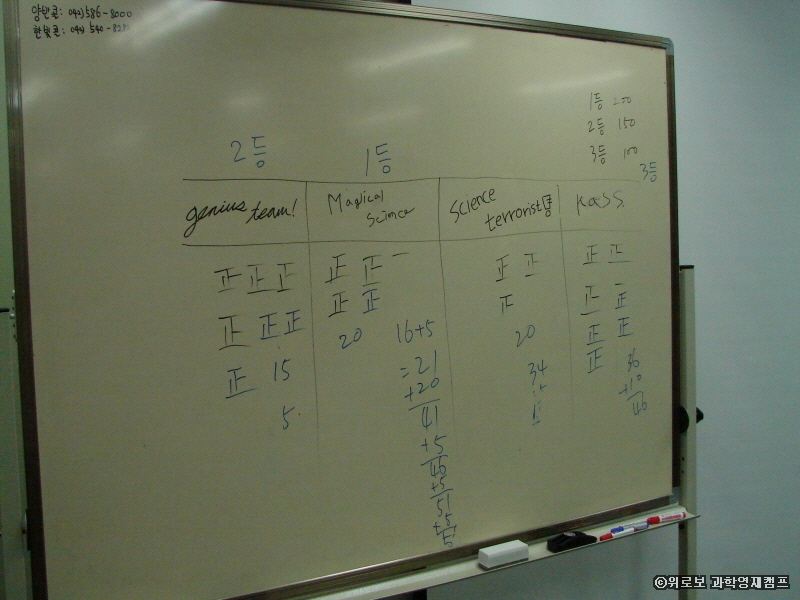 양반콜: 042)586-8000
한빛콘: 042) 540-828
1등 200
2등 150
3등 100
2등
1등
3등
genius team!
Magical
Science
Science
terrorist
KaSS
正 正 正
正 正 正
正 15
5
正 正 一
正 正
20 16+5
=21
+20
41
+5
46
+5
51
+5
正 正
正
20
34
正 正
正 正
正 正
正 36
+10
46
©위로보 과학영재캠프